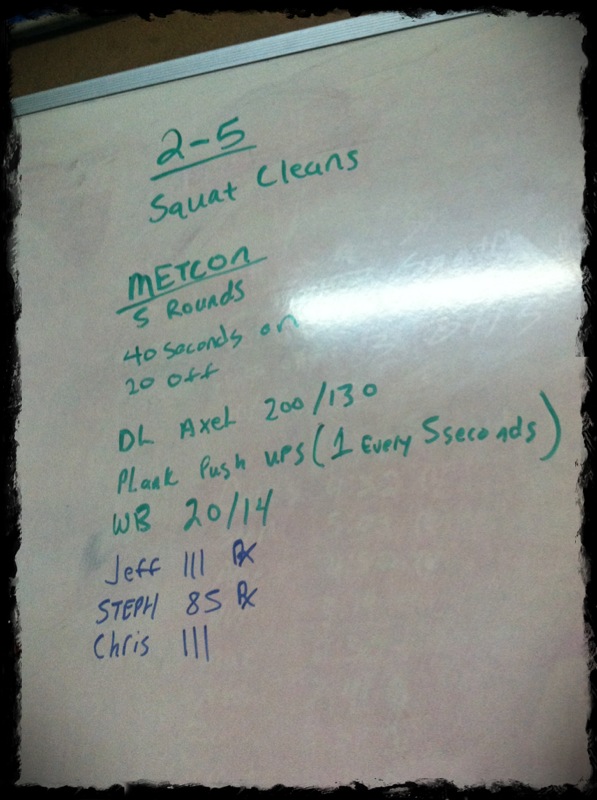 2-5
Squat Cleans
METCON
5 Rounds
40 seconds on
20 off
DL Axel 200/130
Plank Push ups (1 Every 5 seconds)
WB 20/14
Jeff 111 Rx
STEPH 85 Rx
Chris 111